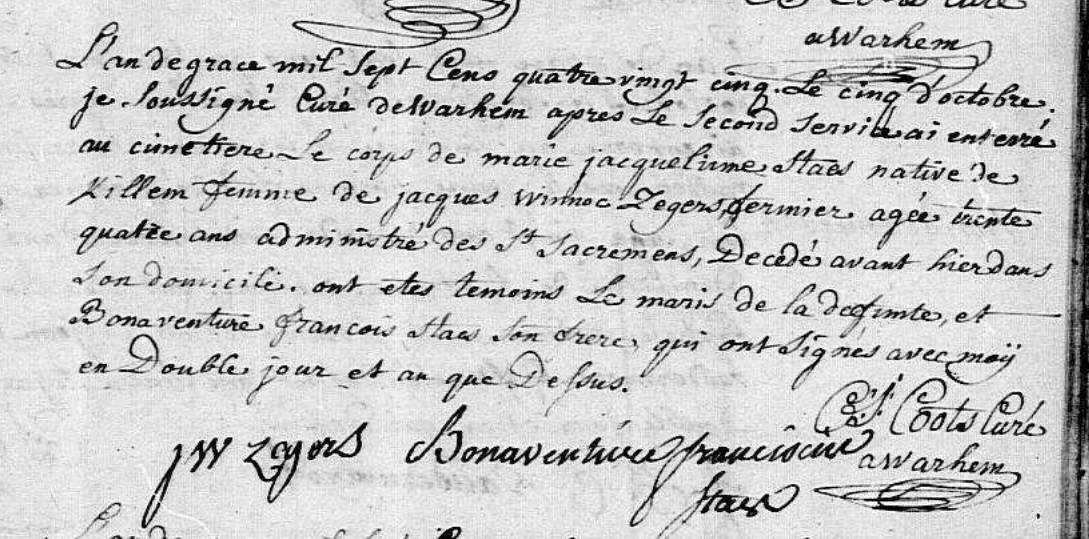 Curé
a Warhem
L'an de grace mil sept Cens quatre vingt cinq. Le cinq d'octobre.
je soussigné Curé de Warhem apres Le second service ai enterré
au cimetiere Le corps de marie jacquelinne Staes native de
Killem femme de jacques winnoc Zegers, fermier agée trente
quatre ans administré des Sts Sacremens, Decedé avant hier dans
son domicile. ont etes temoins Le maris de la defunte, et
Bonaventure francois Staes son frere, qui ont signés avec moÿ
en Double jour et an que Dessus.
Coots Curé
JW Zegers Bonaventure
a Warhem
Staes
L'an de